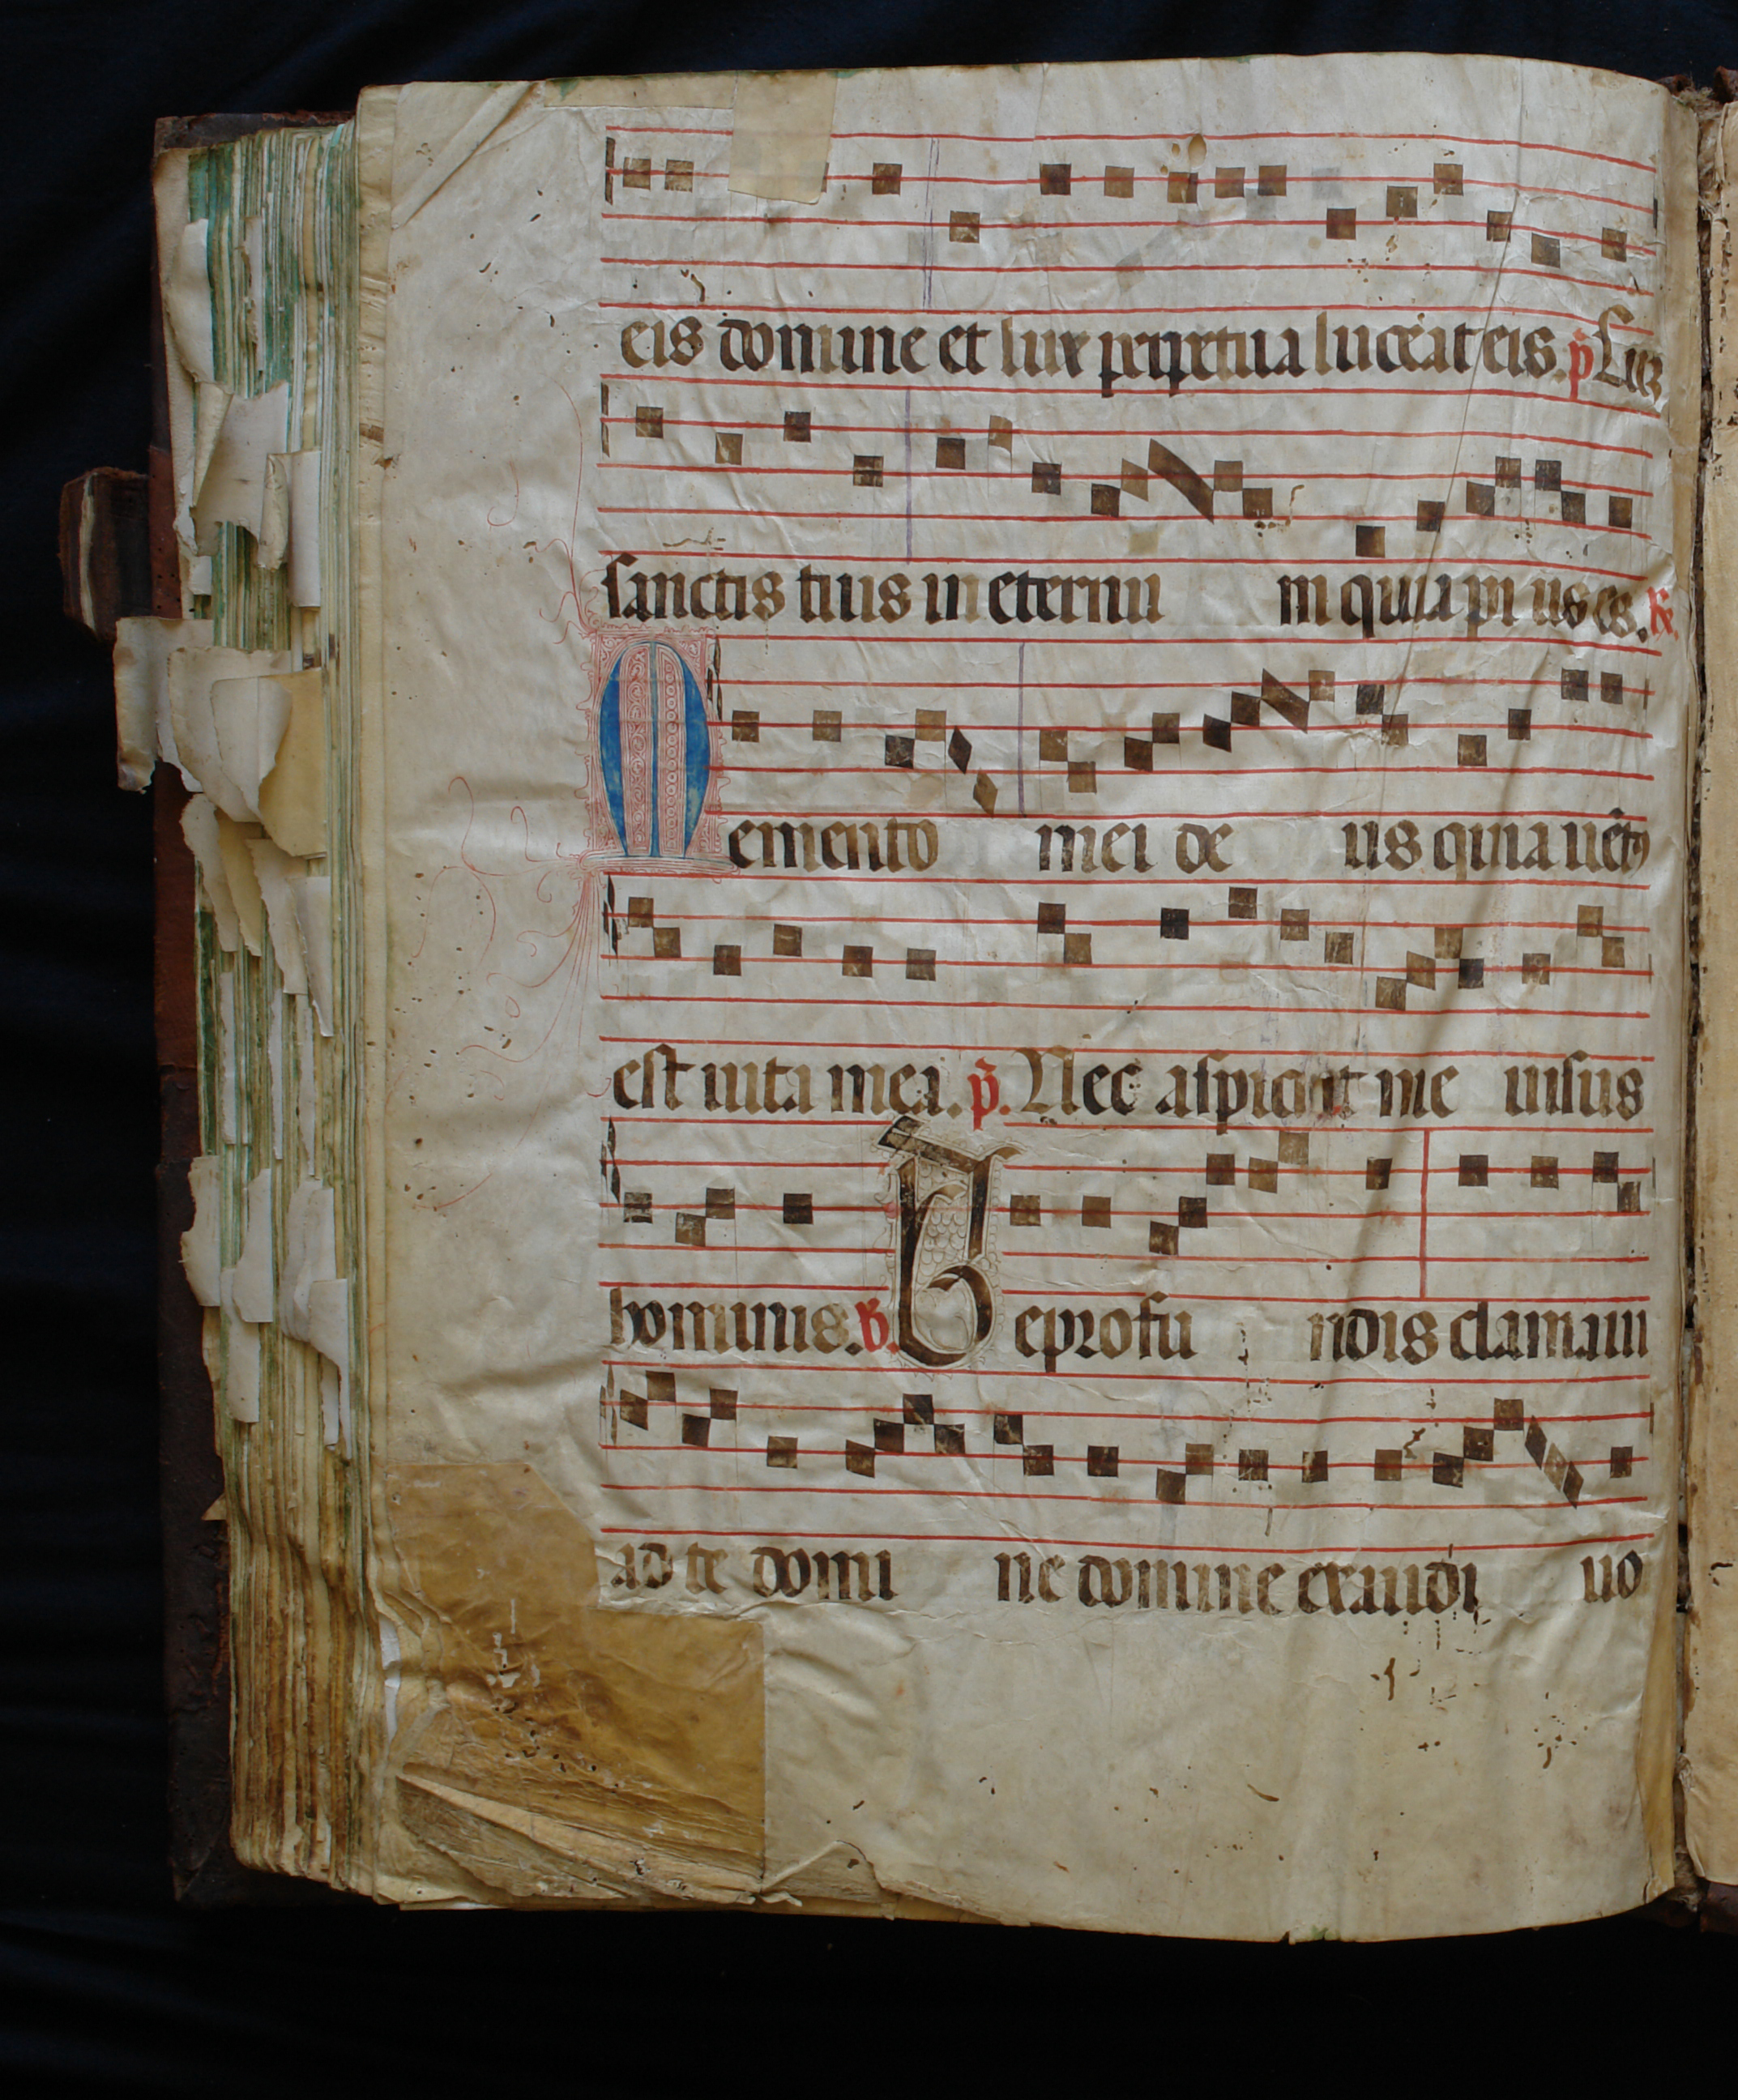 eis domine et lux perpetua luceat eis. p̄ Cuꝫ
sanctis tuis in eternu m quia pi us es. R̄.
Memento mei de us quia uētꝰ
est uita mea. p̄. Nec aspiciat me uisus
hominis. V̄. De profu ndis clamaui
ad te domi ne domine exaudi uo